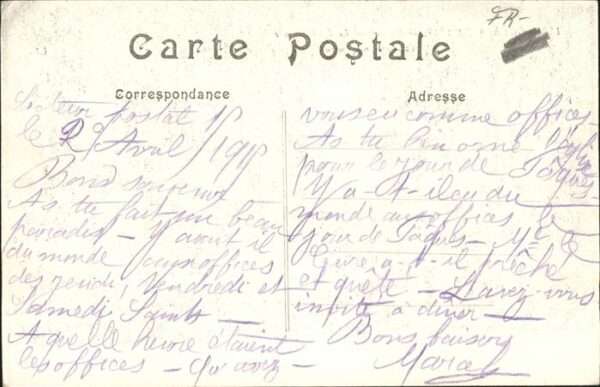 FR-
Carte Postale
Correspondance
Adresse
Secteur postal
le 29 Avril 191
Bons souvenirs
As tu fait un beau
paradis - Y avait il
du monde aux offices
des jeudi, Vendredi et
Samedi Saints -
A quelle heure étaient
les offices - Qu'avez-
vous eu comme offices -
As tu bien orné l'église
pour le jour de Pâques -
Y a-t-il eu du
monde aux offices le
jour de Pâques - Mr le
Curé a-t-il prêché
et quêté - L'avez-vous
invité à dîner -
Bons baisers
Marcel